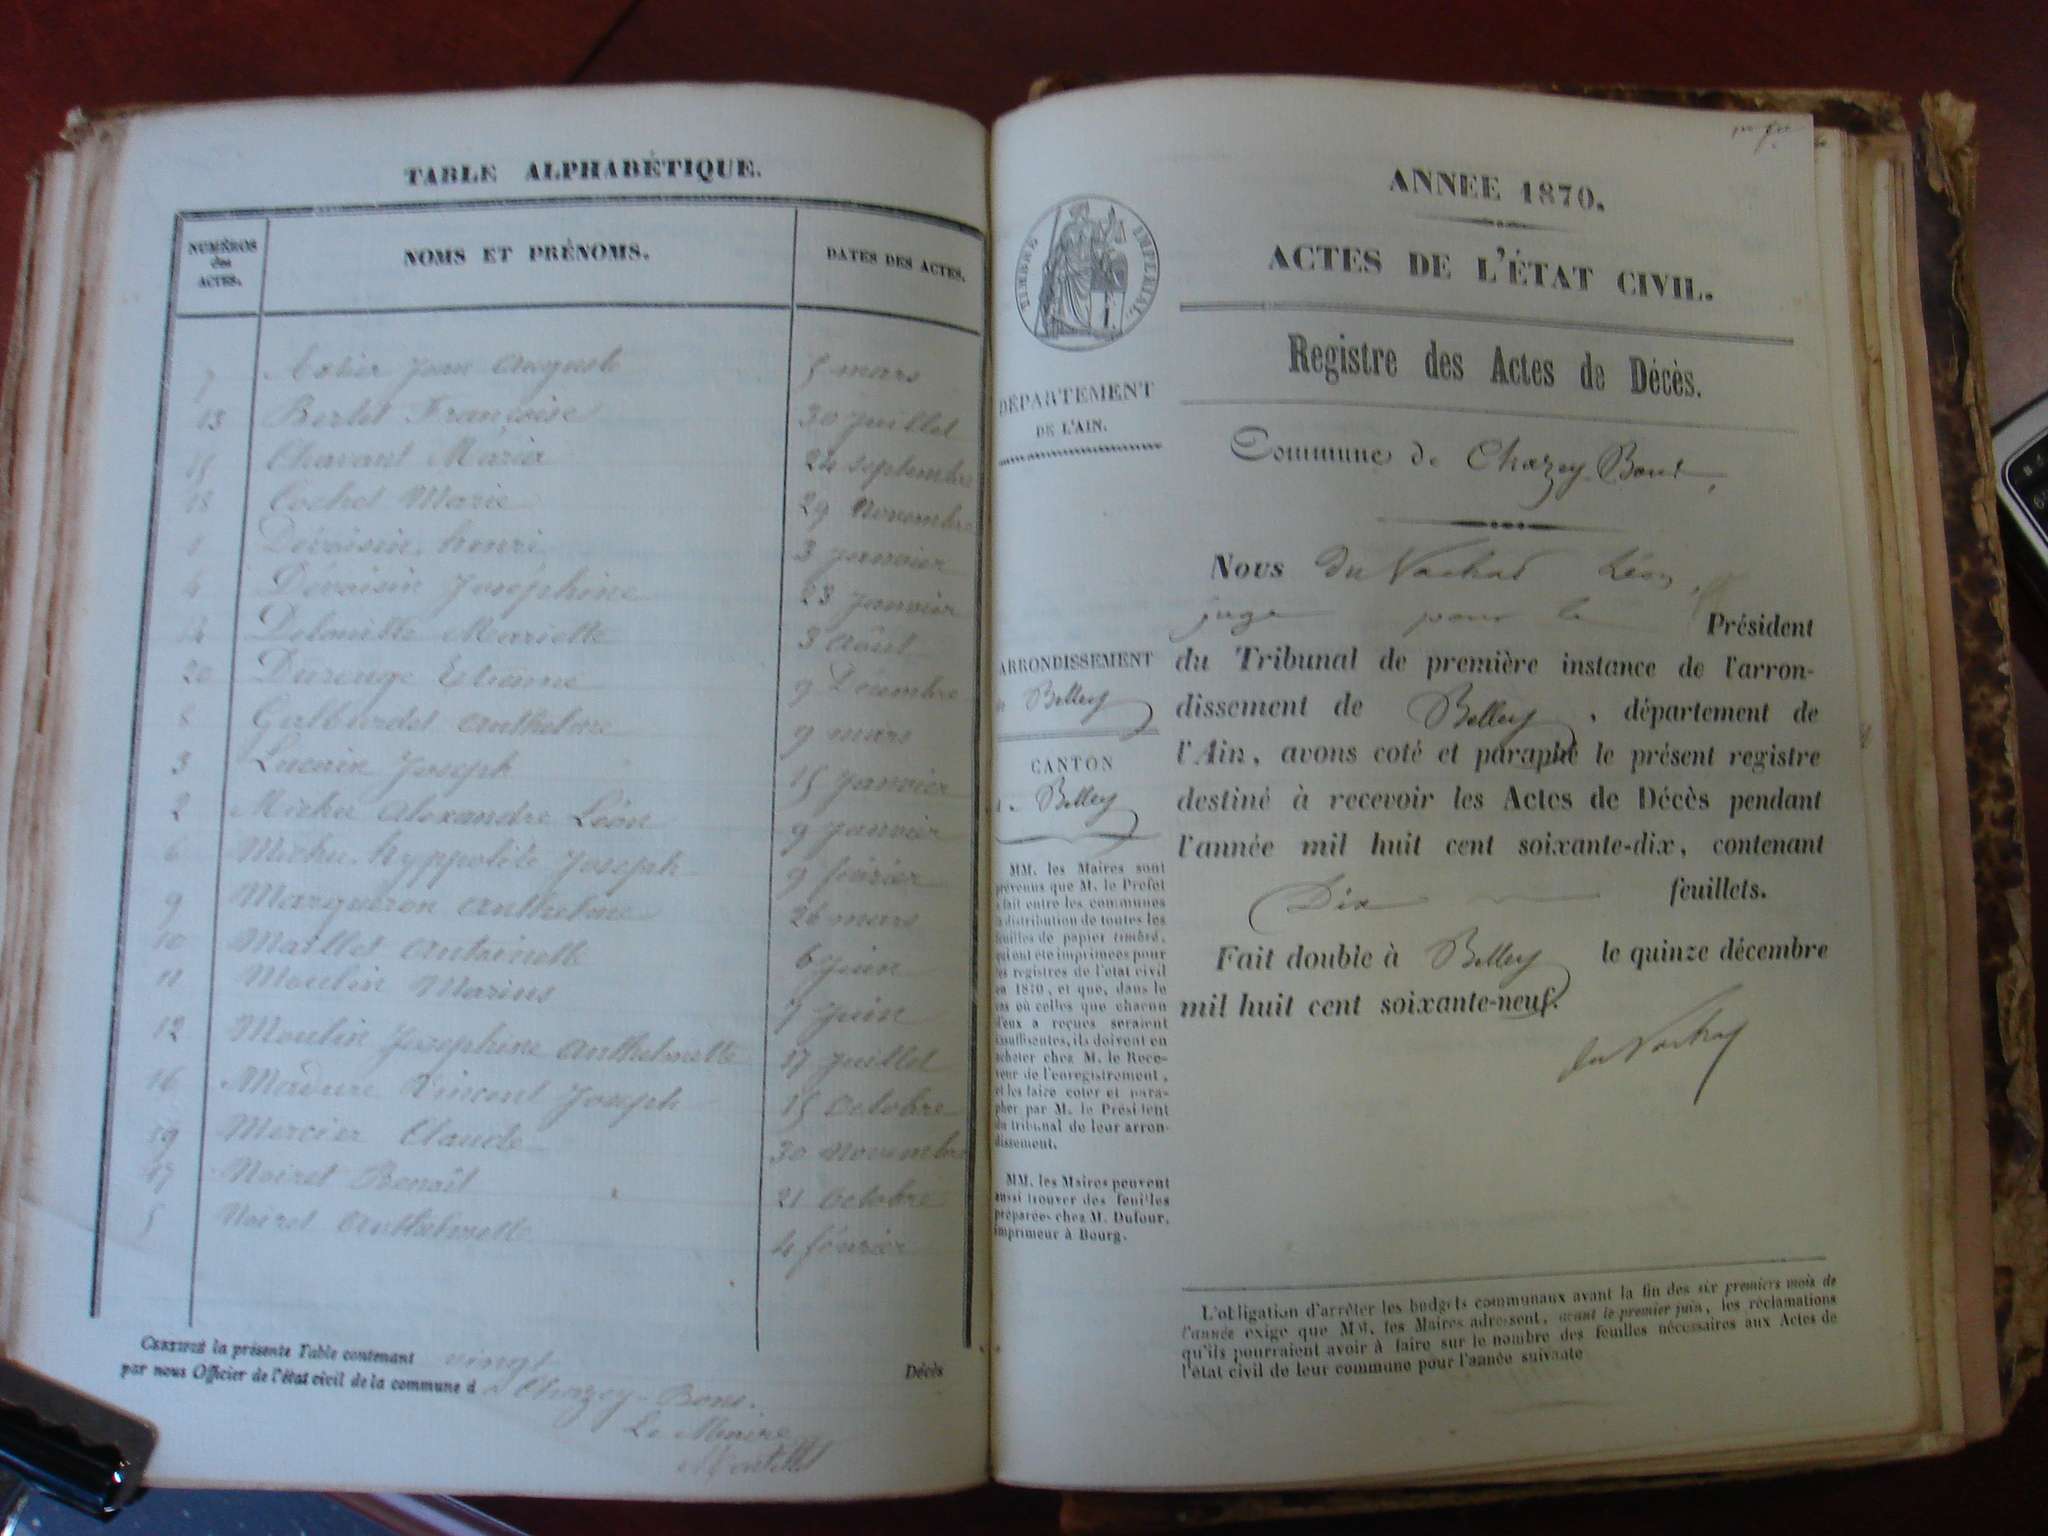 TABLE ALPHABÉTIQUE.
NUMÉROS des ACTES. NOMS ET PRÉNOMS. DATES DES ACTES.
7 Jean Auguste 5 mars
13 Bertet Françoise 30 Juillet
15 Chavant Maria 24 septembre
18 Cochet Marie 29 Novembre
1 Dévoisin henri 3 janvier
4 Dévoisin Joséphine 23 Janvier
14 Mariette 3 Août
20 Etienne 9 Décembre
8 Anthelme 9 mars
3 Joseph 15 Janvier
2 Michu Alexandre Léon 9 Janvier
6 Michu hyppolite Joseph 9 février
9 Marguéron Anthelme 26 mars
10 Maillet Antoinette 6 Juin
11 Moulin Marius 7 Juin
12 Moulin Joséphine Anthelmette 17 Juillet
16 Vincent Joseph 15 Octobre
19 Mercier Claude 30 Novembre
17 Noiret Benoît 21 Octobre
5 Noiret Anthelmette 4 février
CERTIFIÉ la présente Table contenant vingt Décès
par nous Officier de l'état civil de la commune d Chazey-Bons.
Le Maire
ANNEE 1870.
TIMBRE IMPERIAL.
ACTES DE L'ÉTAT CIVIL.
Registre des Actes de Décès.
DÉPARTEMENT
DE L'AIN.
Commune de Chazey-Bons,
Nous du Vachat Léon,
juge pour le Président
ARRONDISSEMENT
Belley
CANTON
Belley
du Tribunal de première instance de l'arron-
dissement de Belley, département de
l'Ain, avons coté et paraphé le présent registre
destiné à recevoir les Actes de Décès pendant
l'année mil huit cent soixante-dix, contenant
Dix feuillets.
Fait double à Belley le quinze décembre
mil huit cent soixante-neuf.
du Vachat
MM. les Maires sont
prévenus que M. le Préfet
fait entre les communes
la distribution de toutes les
feuilles de papier timbré,
qui ont été imprimées pour
les registres de l'état civil
en 1870, et que, dans le
cas où celles que chacun
d'eux a reçues seraient
insuffisantes, ils doivent en
acheter chez M. le Rece-
veur de l'enregistrement,
et les faire coter et para-
pher par M. le Président
du tribunal de leur arron-
dissement.
MM. les Maires peuvent
aussi trouver des feuilles
préparées chez M. Dufour,
imprimeur à Bourg.
L'obligation d'arrêter les budgets communaux avant la fin des six premiers mois de
l'année exige que MM. les Maires adressent, avant le premier juin, les réclamations
qu'ils pourraient avoir à faire sur le nombre des feuilles nécessaires aux Actes de
l'état civil de leur commune pour l'année suivante